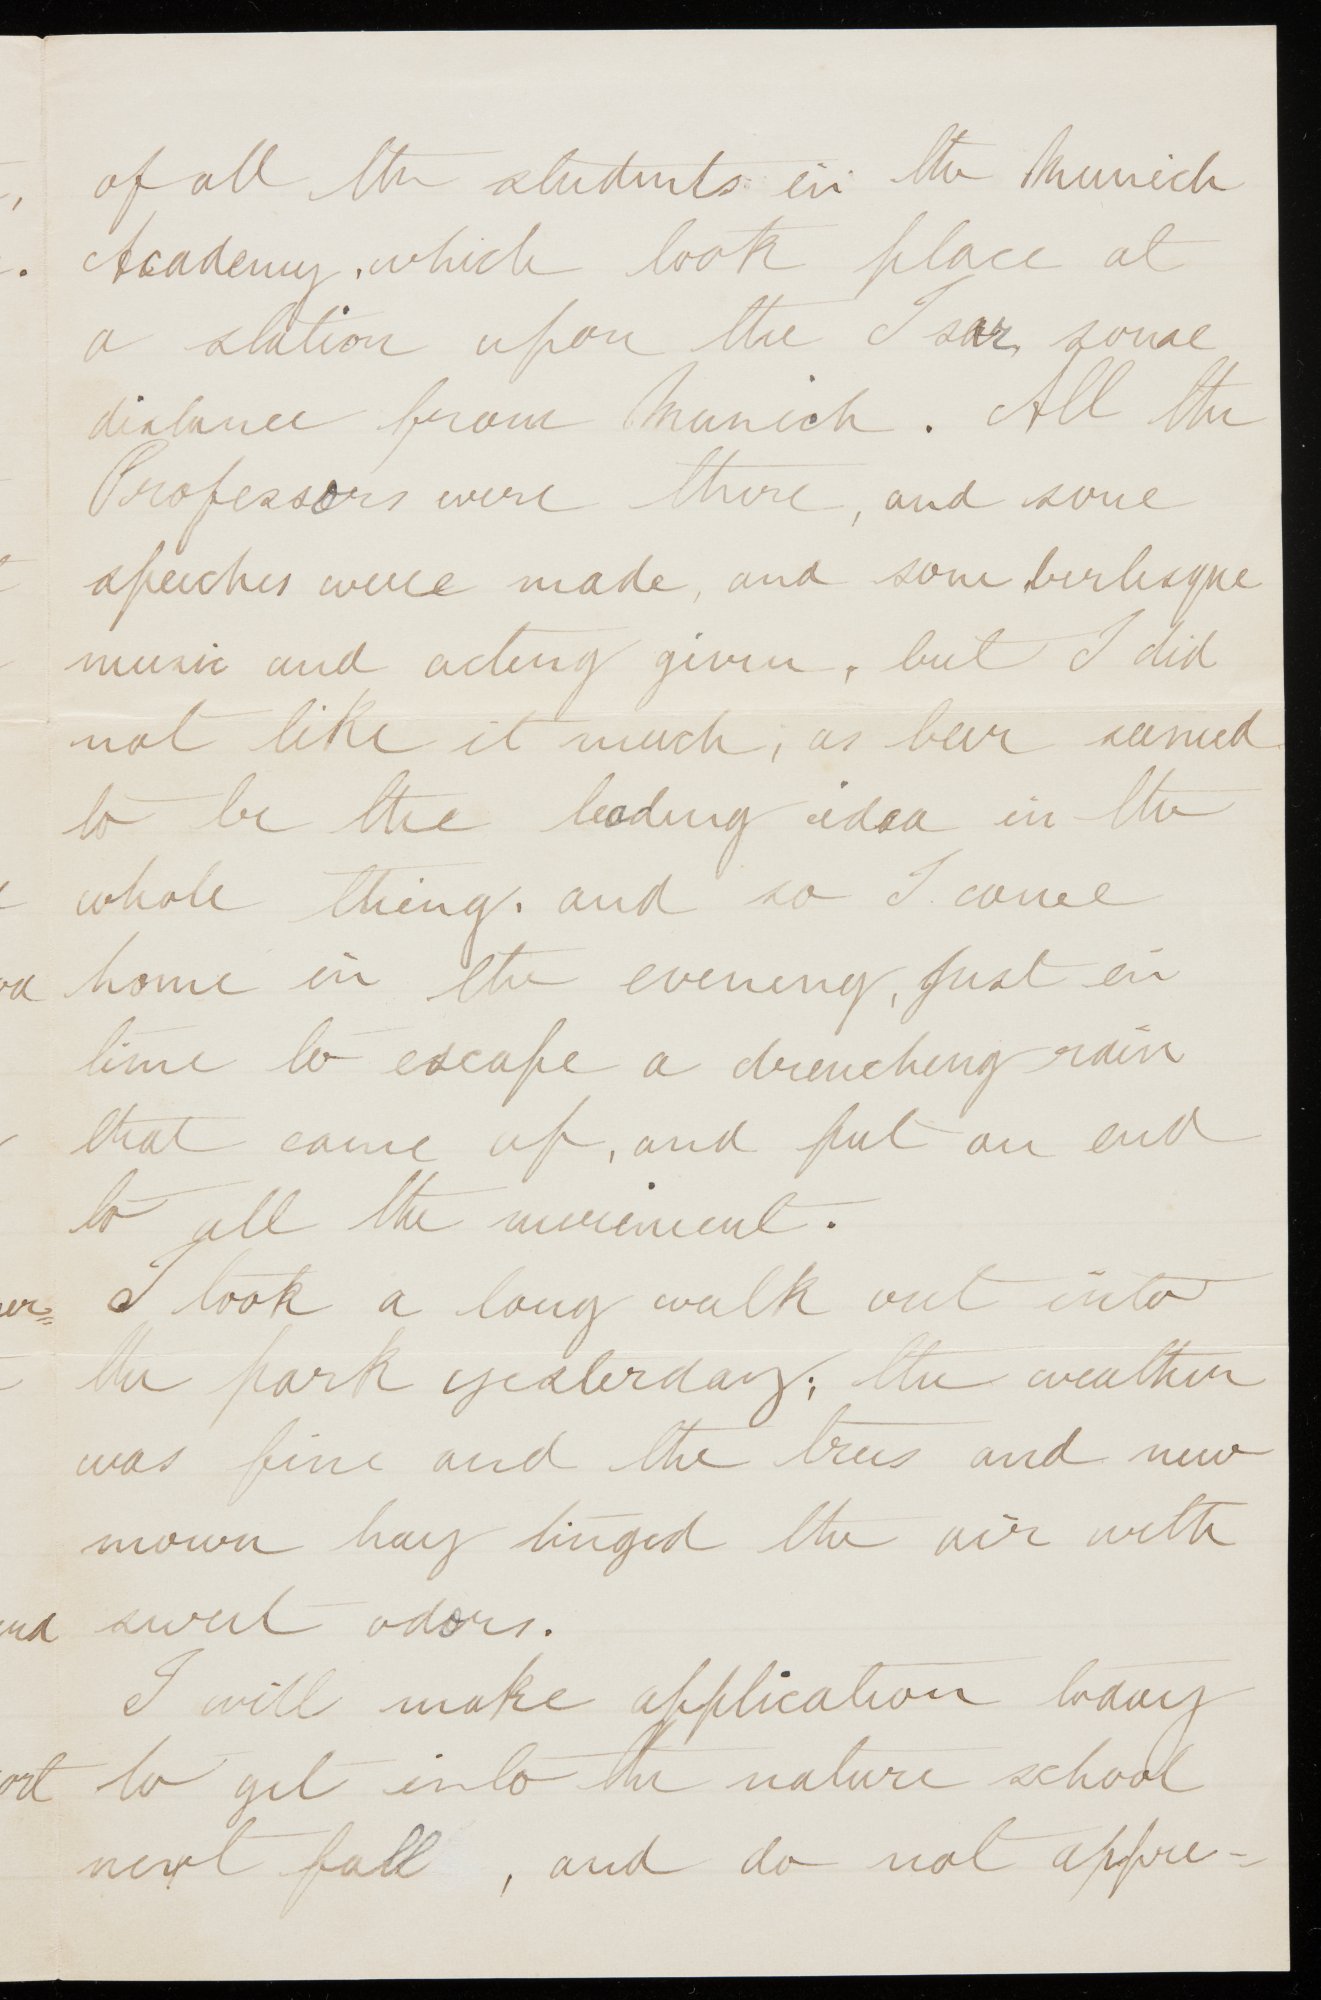 of all the students in the Munich
Academy, which took place at
a station upon the Isar, some
distance from Munich. All the
Professors were there, and some
speeches were made, and some burlesque
music and acting given, but I did
not like it much, as beer seemed
to be the leading idea in the
whole thing. and so I came
home in the evening, just in
time to escape a drenching rain
that came up, and put an end
to all the merriment.
I took a long walk out into
the park yesterday; the weather
was fine and the trees and new
mown hay tinged the air with
sweet odors.
I will make application today
to get into the nature school
next fall, and do not appre-